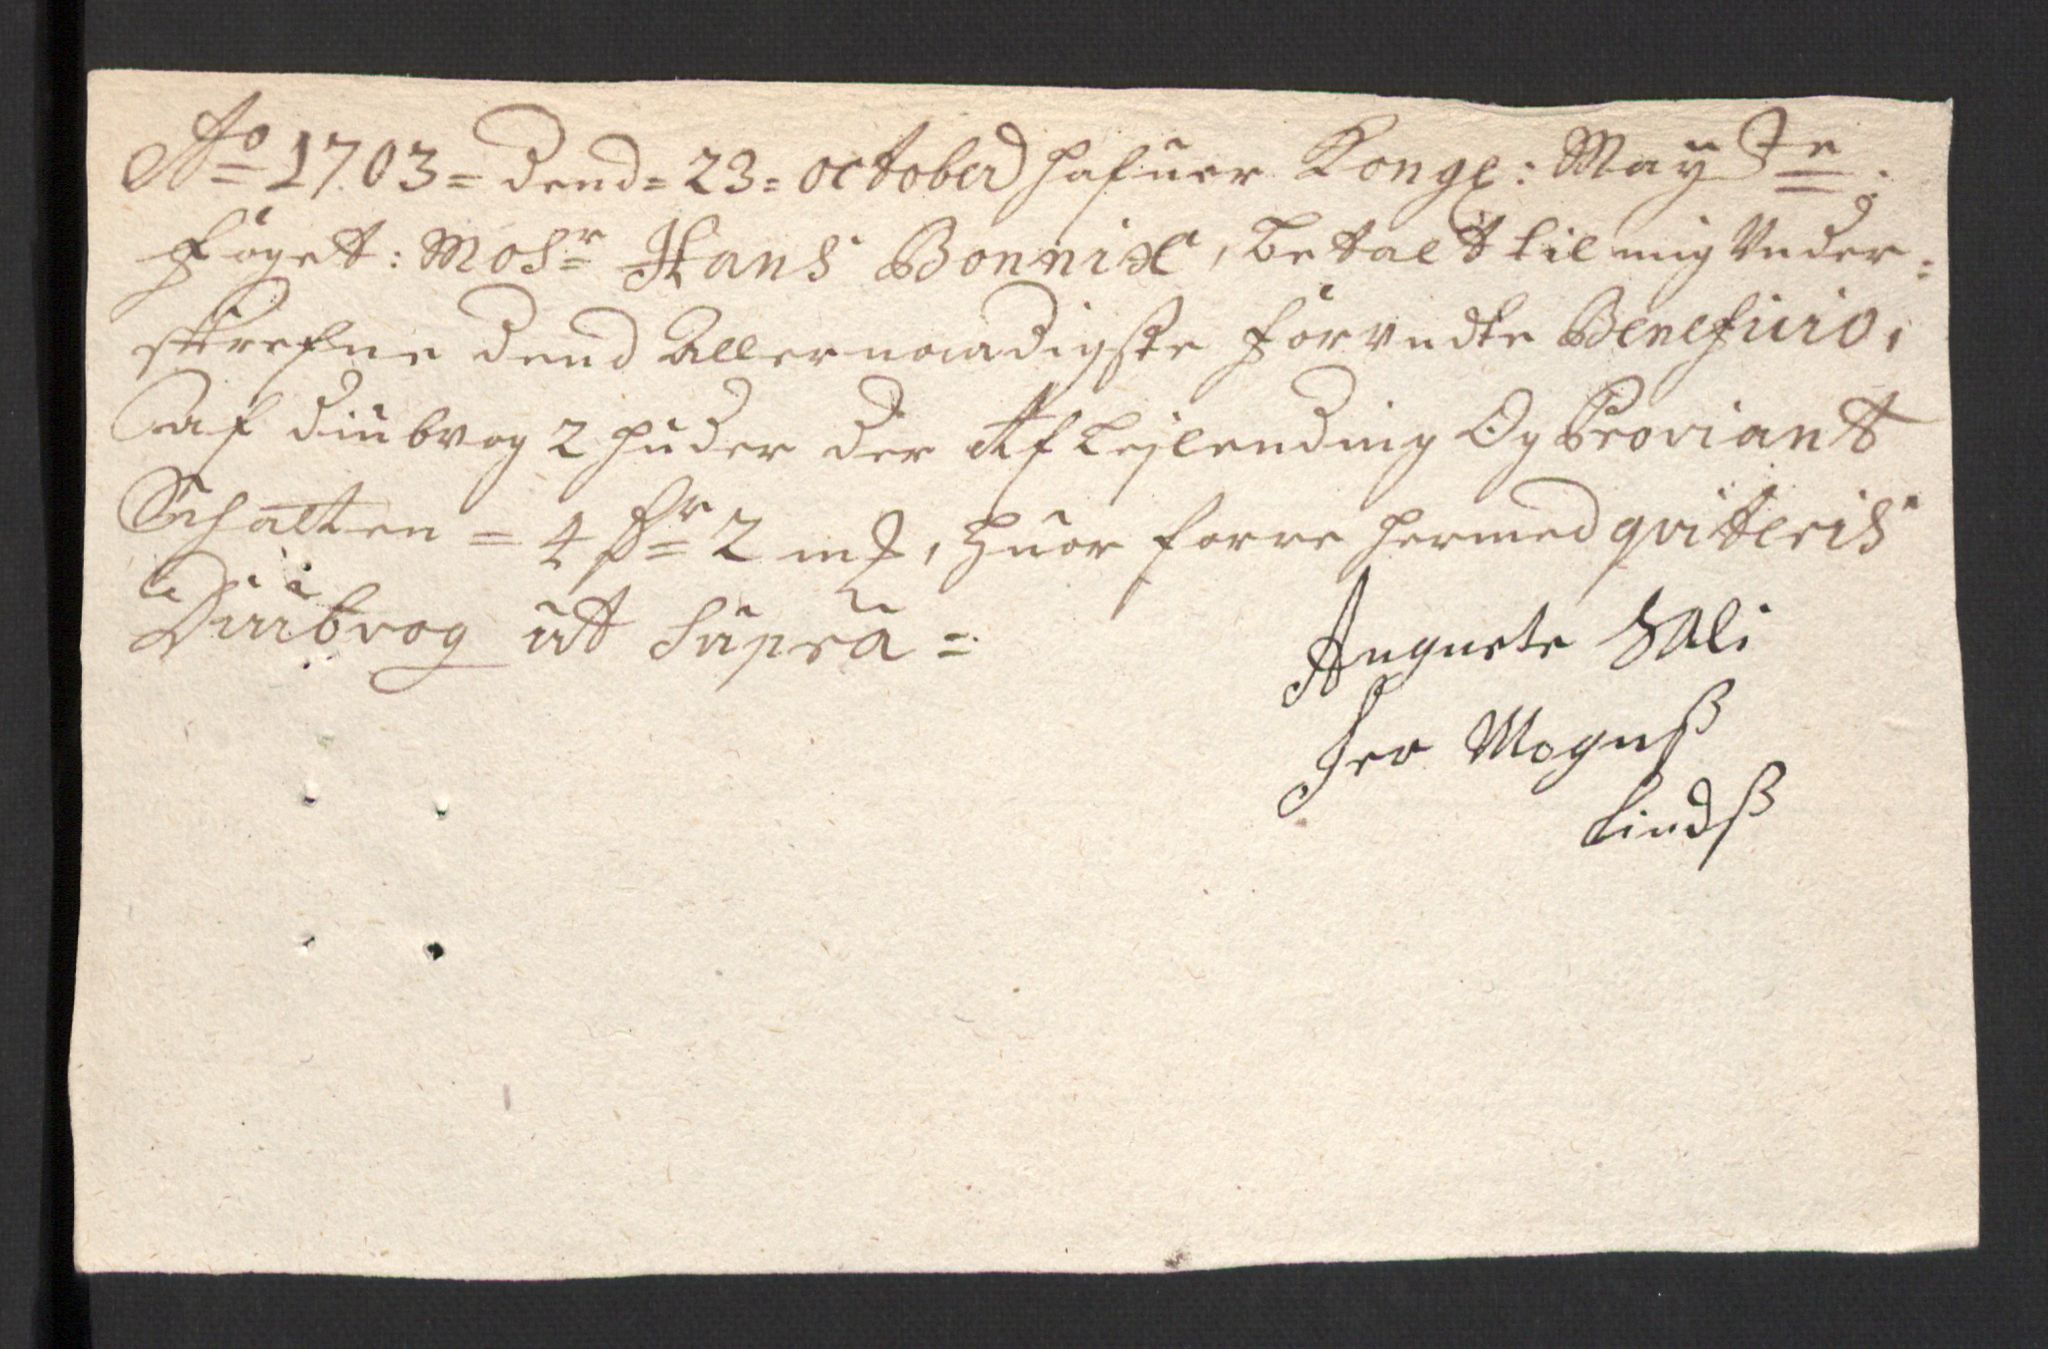 Ao 1703 = dend = 23 = october hafuer Kongl: Maÿste:
foget: Mosr Hans Bonnix, betalt til mig Vnder=
skrefne dend Allernaadigste forundte Beneficio,
af diubvog 2 huder der Af Lejlending Og Proviant
Schatten = 4 sr 2 mk, huor forre hermed qviteris
Diubvog ut supra =
Angnete
Mognß
Lindß